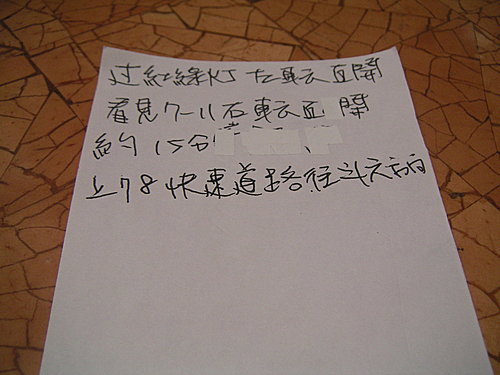 过紅綠灯左轉直開
看見7-11右轉直開
約15分
上78快速道路往斗六方向